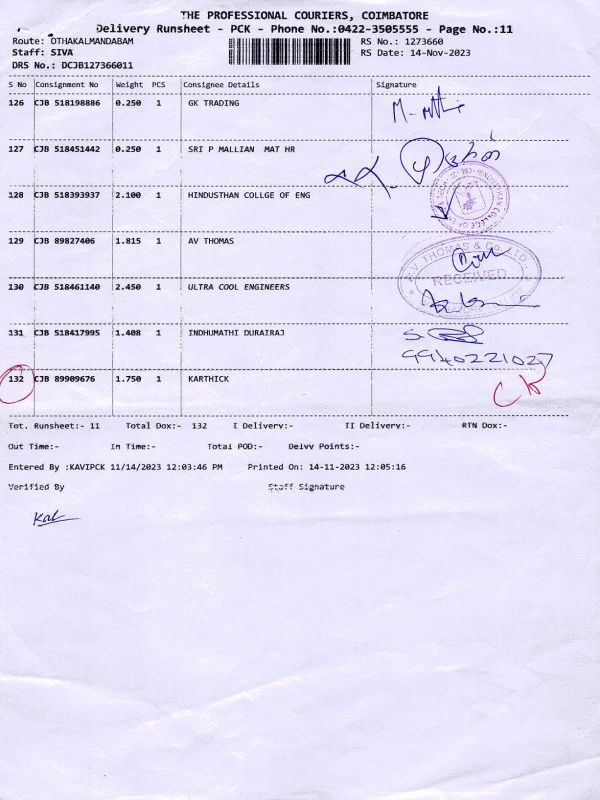 THE PROFESSIONAL COURIERS, COIMBATORE
Delivery Runsheet - PCK - Phone No.:0422-3505555 - Page No.:11
Route: OTHAKALMANDABAM RS No.: 1273660
Staff: SIVA RS Date: 14-Nov-2023
DRS No.: DCJB127366011
S No Consignment No Weight PCS Consignee Details Signature
126 CJB 518198886 0.250 1 GK TRADING
127 CJB 518451442 0.250 1 SRI P MALLIAN MAT HR
128 CJB 518393937 2.100 1 HINDUSTHAN COLLGE OF ENG
129 CJB 89827406 1.815 1 AV THOMAS
A.V. THOMAS & CO. LTD.
RECEIVED
130 CJB 518461140 2.450 1 ULTRA COOL ENGINEERS
131 CJB 518417995 1.408 1 INDHUMATHI DURAIRAJ
9940221027
132 CJB 89909676 1.750 1 KARTHICK
Tot. Runsheet:- 11 Total Dox:- 132 I Delivery:- II Delivery:- RTN Dox:-
Out Time:- In Time:- Total POD:- Delvy Points:-
Entered By :KAVIPCK 11/14/2023 12:03:46 PM Printed On: 14-11-2023 12:05:16
Verified By Staff Signature